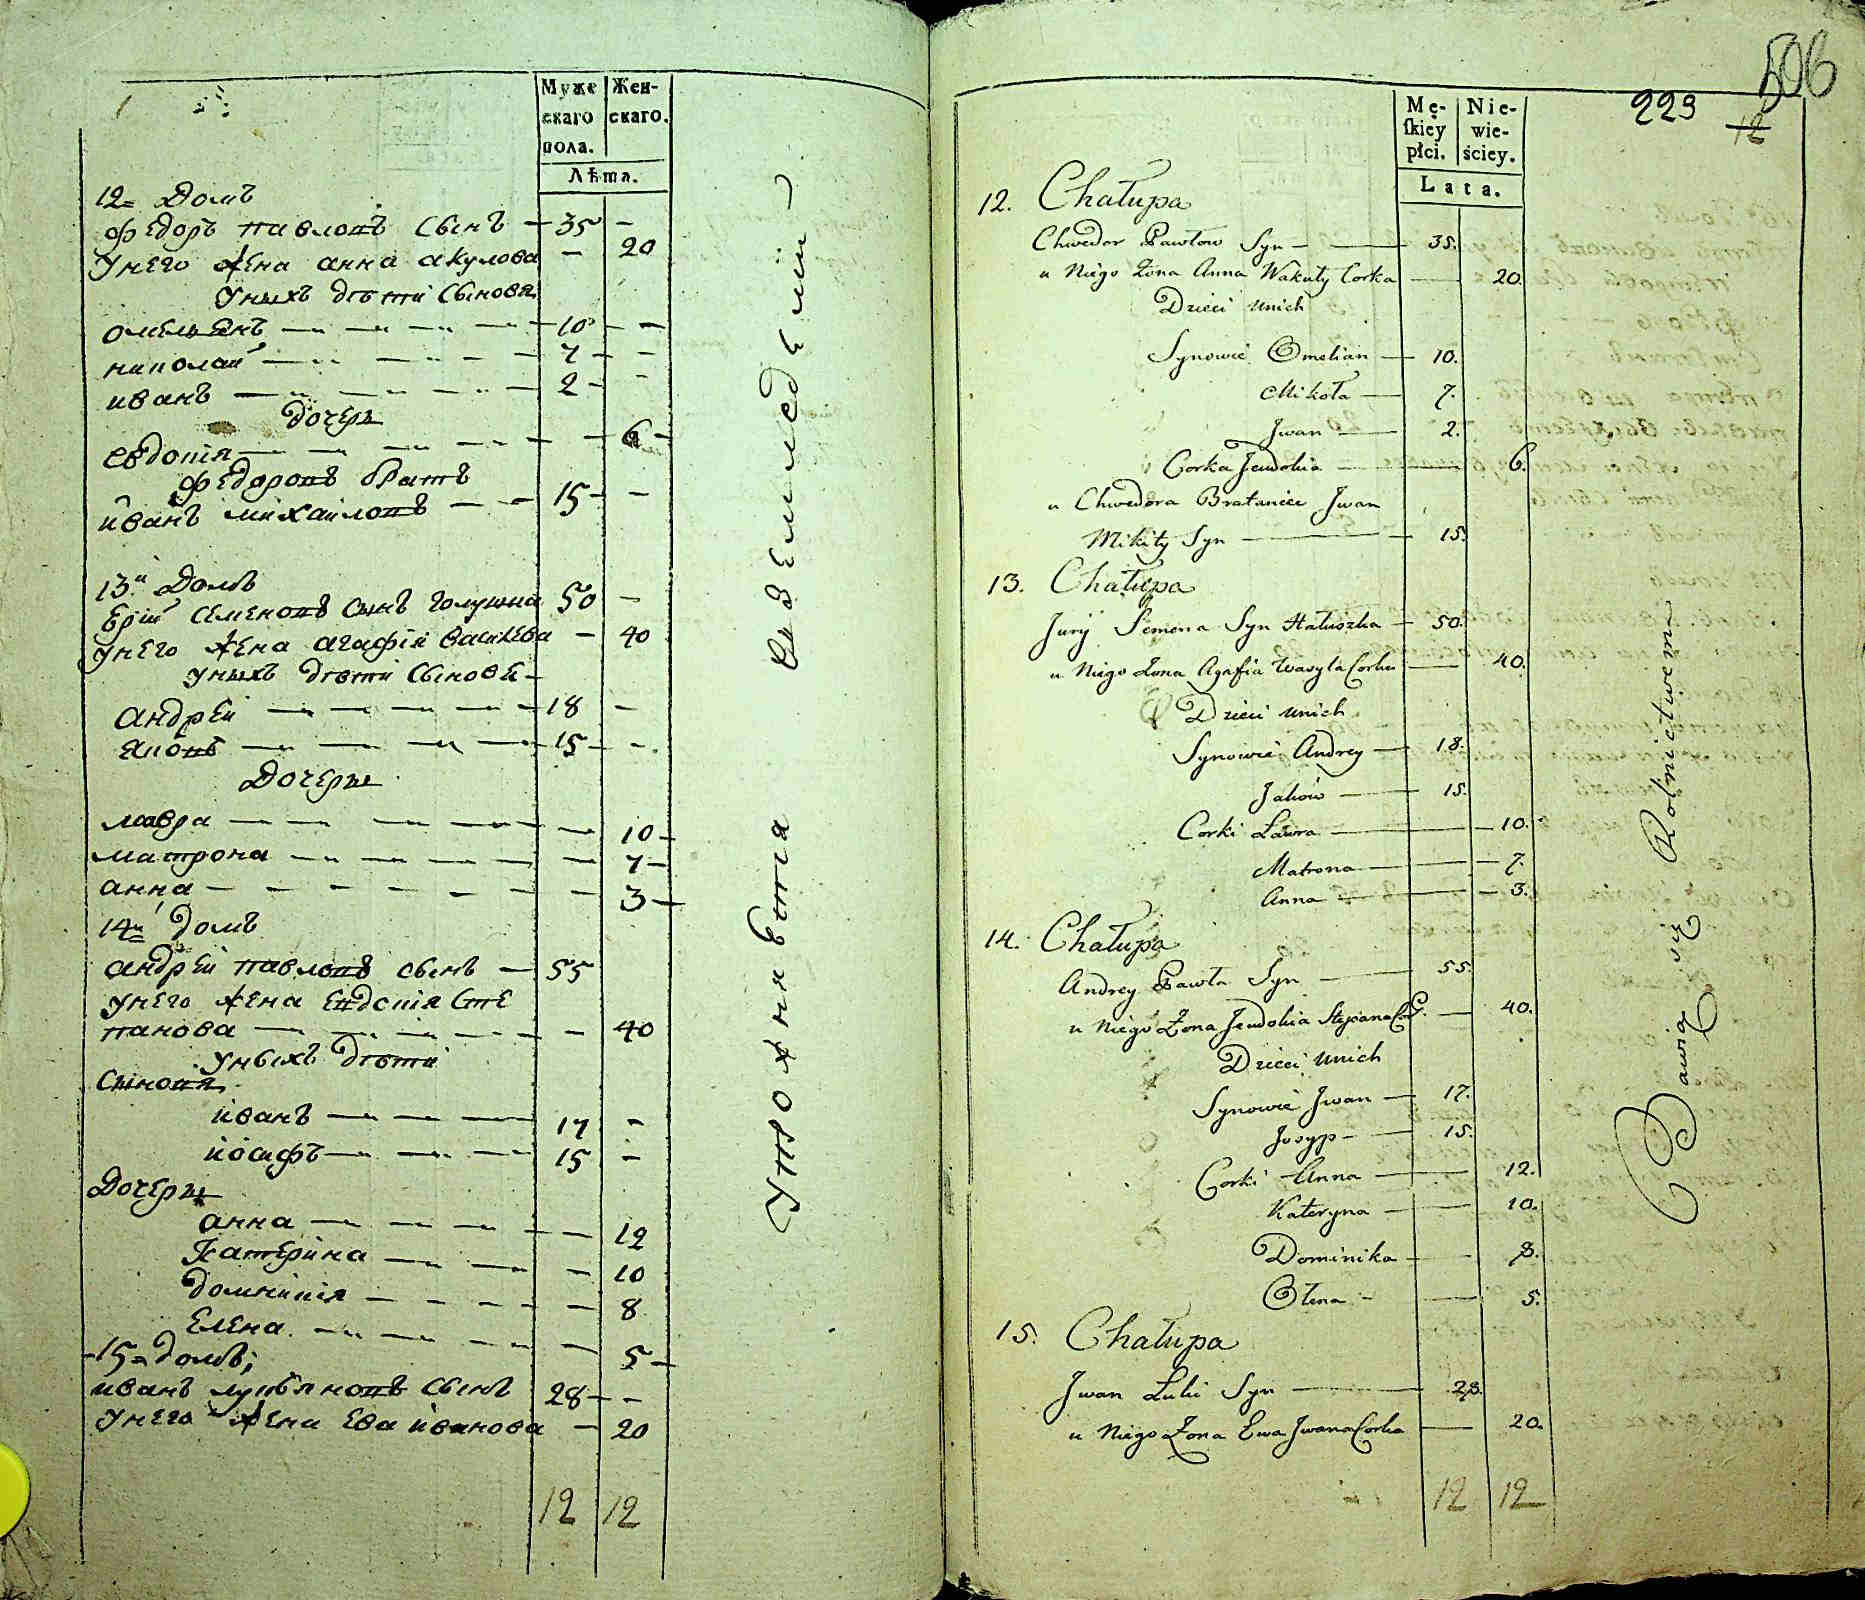 Муже
скаго
пола.
Жен-
скаго.
Лѣта.
12 = Домъ
Федоръ павловъ сынъ — 35 —
унего жена анна акулова — 20
уныхъ дѣти сыновя
омельянъ — 10 —
николай — 7 —
иванъ — 2 —
дочерь
евдокія — 6 —
федоровъ братъ
иванъ михаиловъ — 15 —
13й Домъ
Ерій семеновъ сынъ голушка 50 —
унего жена агафія василева — 40
уныхъ дѣти сынове —
андрей — 18 —
яковъ — 15 —
дочеры
лавра — 10 —
матрона — 7 —
анна — 3 —
14й домъ
андрей павловъ сынъ — 55
унего жена евдокія сте
панова — 40
уныхъ дѣти
сыновя
иванъ — 17 —
иосифъ — 15 —
Дочеры
анна — 12
катерина — 10
домникія — 8
елена — 5 —
15 = домъ;
иванъ лукяновъ сынъ 28 —
унего жена ева иванова — 20
12 12
506
223
12
Mę-
ſkiey
płci.
Nie-
wie-
ściey.
Lata.
12. Chałupa
Chwedor Pawłow Syn — 35.
u Niego Żona Anna Wakuły Corka — 20.
Dzieci unich
Synowie Omelian — 10.
Mikoła — 7.
Jwan — 2.
Corka Jeudokia — 6.
u Chwedora Brataniec Jwan
Mikity Syn — 15.
13. Chałupa
Jury Semena Syn Hałuszka — 50.
u Niego Żona Agafia Wasyla Corka — 40.
Dzieci unich
Synowie Andrey — 18.
Jakow — 15.
Corki Ławra — 10.
Matrona — 7.
Anna — 3.
14. Chałupa
Andrey Pawła Syn — 55.
u Niego Żona Jeudokia Stepana Cor. — 40.
Dzieci unich
Synowie Jwan — 17.
Josyp — 15.
Corki Anna — 12.
Kateryna — 10.
Dominika — 8.
Ołena — 5.
15. Chałupa
Jwan Łuki Syn — 28.
u Niego Żona Ewa Jwana Corka — 20.
12 12
Bawią się Rolnictwem